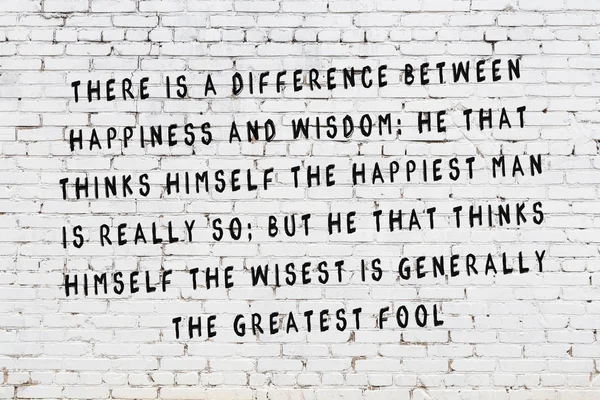 THERE IS A DIFFERENCE BETWEEN
HAPPINESS AND WISDOM: HE THAT
THINKS HIMSELF THE HAPPIEST MAN
IS REALLY SO; BUT HE THAT THINKS
HIMSELF THE WISEST IS GENERALLY
THE GREATEST FOOL